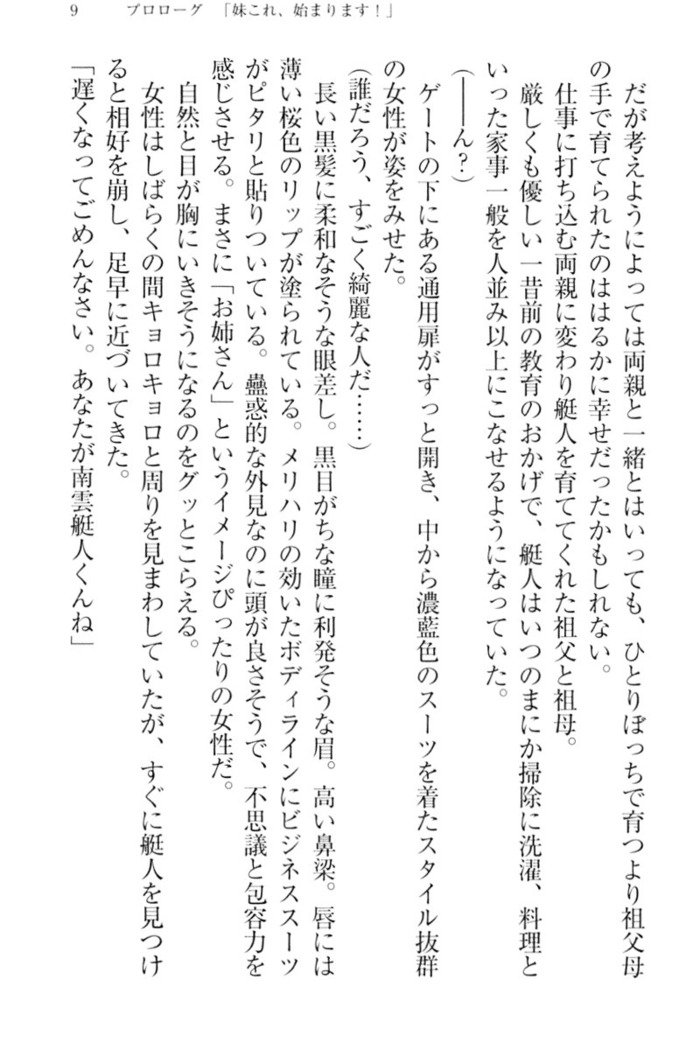 9 プロローグ 「妹これ、始まります！」
だが考えようによっては両親と一緒とはいっても、ひとりぼっちで育つより祖父母
の手で育てられたのははるかに幸せだったかもしれない。
仕事に打ち込む両親に変わり艇人を育ててくれた祖父と祖母。
厳しくも優しい一昔前の教育のおかげで、艇人はいつのまにか掃除に洗濯、料理と
いった家事一般を人並み以上にこなせるようになっていた。
（――ん？）
ゲートの下にある通用扉がすっと開き、中から濃藍色のスーツを着たスタイル抜群
の女性が姿をみせた。
（誰だろう、すごく綺麗な人だ……）
長い黒髪に柔和なそうな眼差し。黒目がちな瞳に利発そうな眉。高い鼻梁。唇には
薄い桜色のリップが塗られている。メリハリの効いたボディラインにビジネススーツ
がピタリと貼りついている。蠱惑的な外見なのに頭が良さそうで、不思議と包容力を
感じさせる。まさに「お姉さん」というイメージぴったりの女性だ。
自然と目が胸にいきそうになるのをグッとこらえる。
女性はしばらくの間キョロキョロと周りを見まわしていたが、すぐに艇人を見つけ
ると相好を崩し、足早に近づいてきた。
「遅くなってごめんなさい。あなたが南雲艇人くんね」